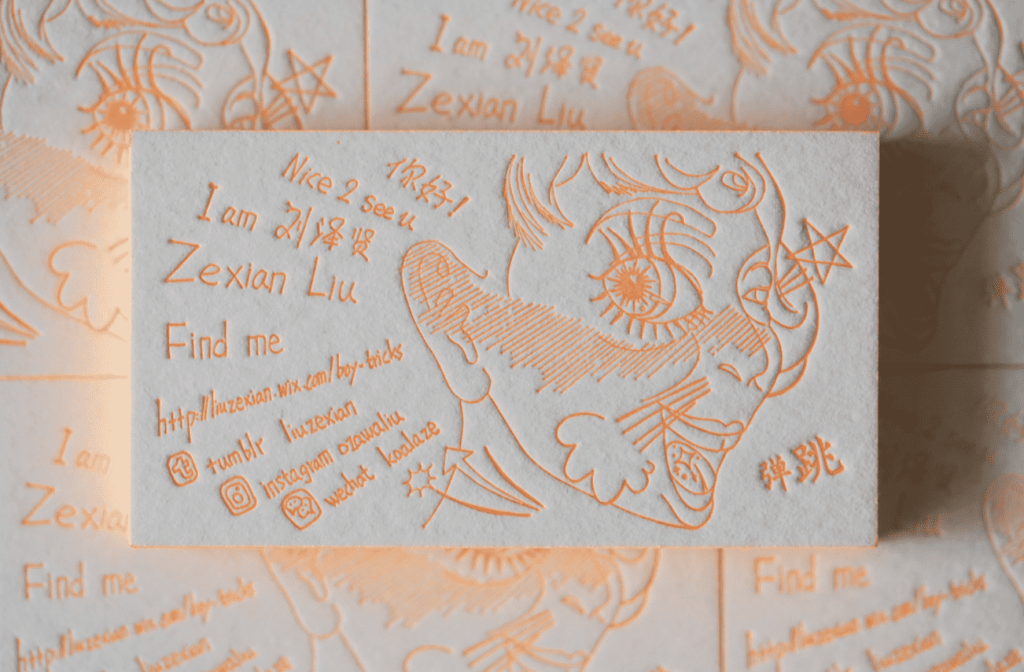 你好!
Nice 2 see u
I am 刘泽贤
Zexian Liu
Find me
http://liuzexian.wix.com/boy-tricks
tumblr liuzexian
instagram ozawaliu
wechat koalaze
弹跳
Nice 2 see u
你好!
I am 刘泽贤
Zexian Liu
I am
Zexia
Find me
http://liuzexian.wix.com/boy-tricks
liuzexian
Find me
http://liuzexian.wix.com/boy-tricks
liuzexian